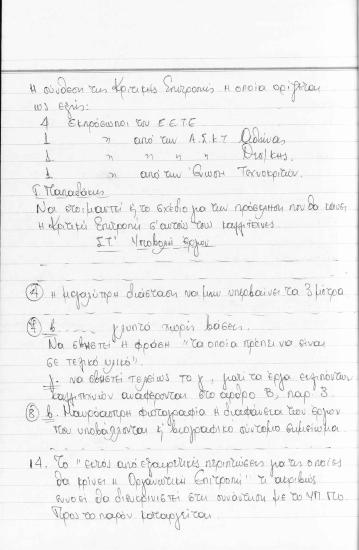 Η σύνθεση της Κριτικής Επιτροπής η οποία ορίζεται
ως εξής:
4 Εκπρόσωποι του ΕΕΤΕ
1 " από την Α.Σ.Κ.Τ Αθήνας
1 " " " " Θεσ/κης.
1 " από την Ένωση Τεχνοκριτών.
Γ. Παπαδάκης
Να ετοιμαστεί & το σχέδιο για την πρόσκληση που θα κάνει
η Κριτική Επιτροπή σ'αυτούς τους καλλιτέχνες.
ΣΤ' Υποβολή έργων
4 Η μεγαλύτερη διάσταση να μην υπερβαίνει τα 3 μέτρα
7 β. ...... γλυπτά χωρίς βάσεις.
Να σβηστεί η φράση "τα οποία πρέπει να είναι
σε τελικό υλικό".
γ. να σβηστεί τελείως το γ, γιατί τα έργα εκλιπόντων
καλλιτεχνών αναφέρονται στο άρθρο Β, παρ 3.
8 β. Μαυρόασπρη φωτογραφία ή διαφάνεια των έργων
που υποβάλλονται & βιογραφικό σύντομο σημείωμα.
14. Το "εκτός από εξαιρετικές περιπτώσεις για τις οποίες
θα κρίνει η Οργανωτική Επιτροπή" τι ακριβώς
εννοεί θα διευκρινιστεί στη συνάντηση με το ΥΠ.ΠΟ.
Προς το παρόν καταργείται.